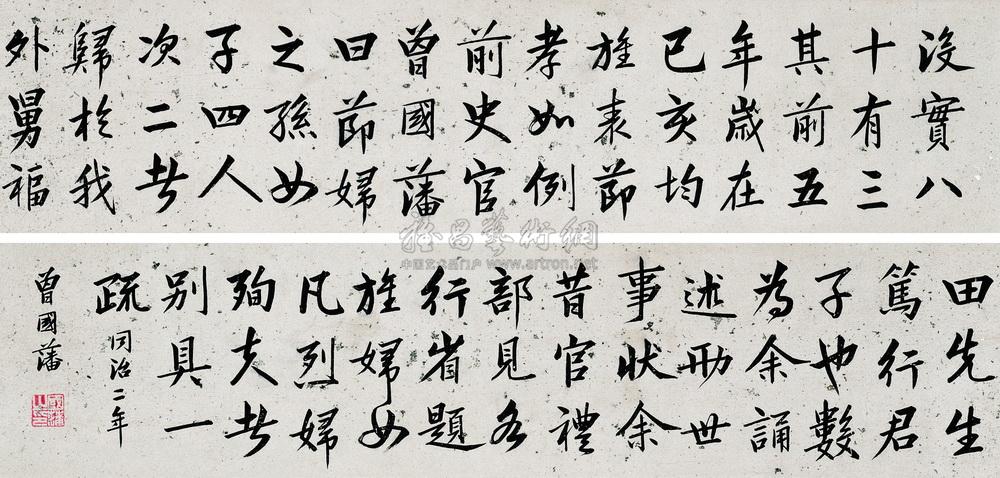 沒實八
十有三
其前五
年歲在
已亥均
旌表節
孝如例
前史官
曾國藩
曰節婦
之孫女
子四人
次二者
歸於我
外舅福
田先生
篤行君
子也數
為余誦
述刑世
事狀余
昔官禮
部見各
行省題
旌婦女
凡烈婦
殉夫者
別具一
疏
同治二年
曾國藩
雅昌藝術網
中国艺术品门户 www.artron.net